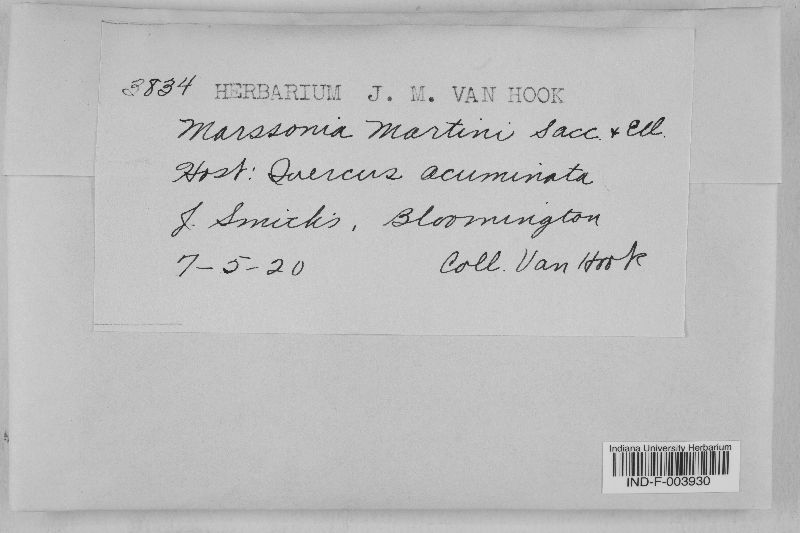 3834 HERBARIUM J. M. VAN HOOK
Marssonia Martini Sacc. & Ell.
Host: Quercus acuminata
J. Smith's, Bloomington
7-5-20 Coll. Van Hook
Indiana University Herbarium
IND-F-003930